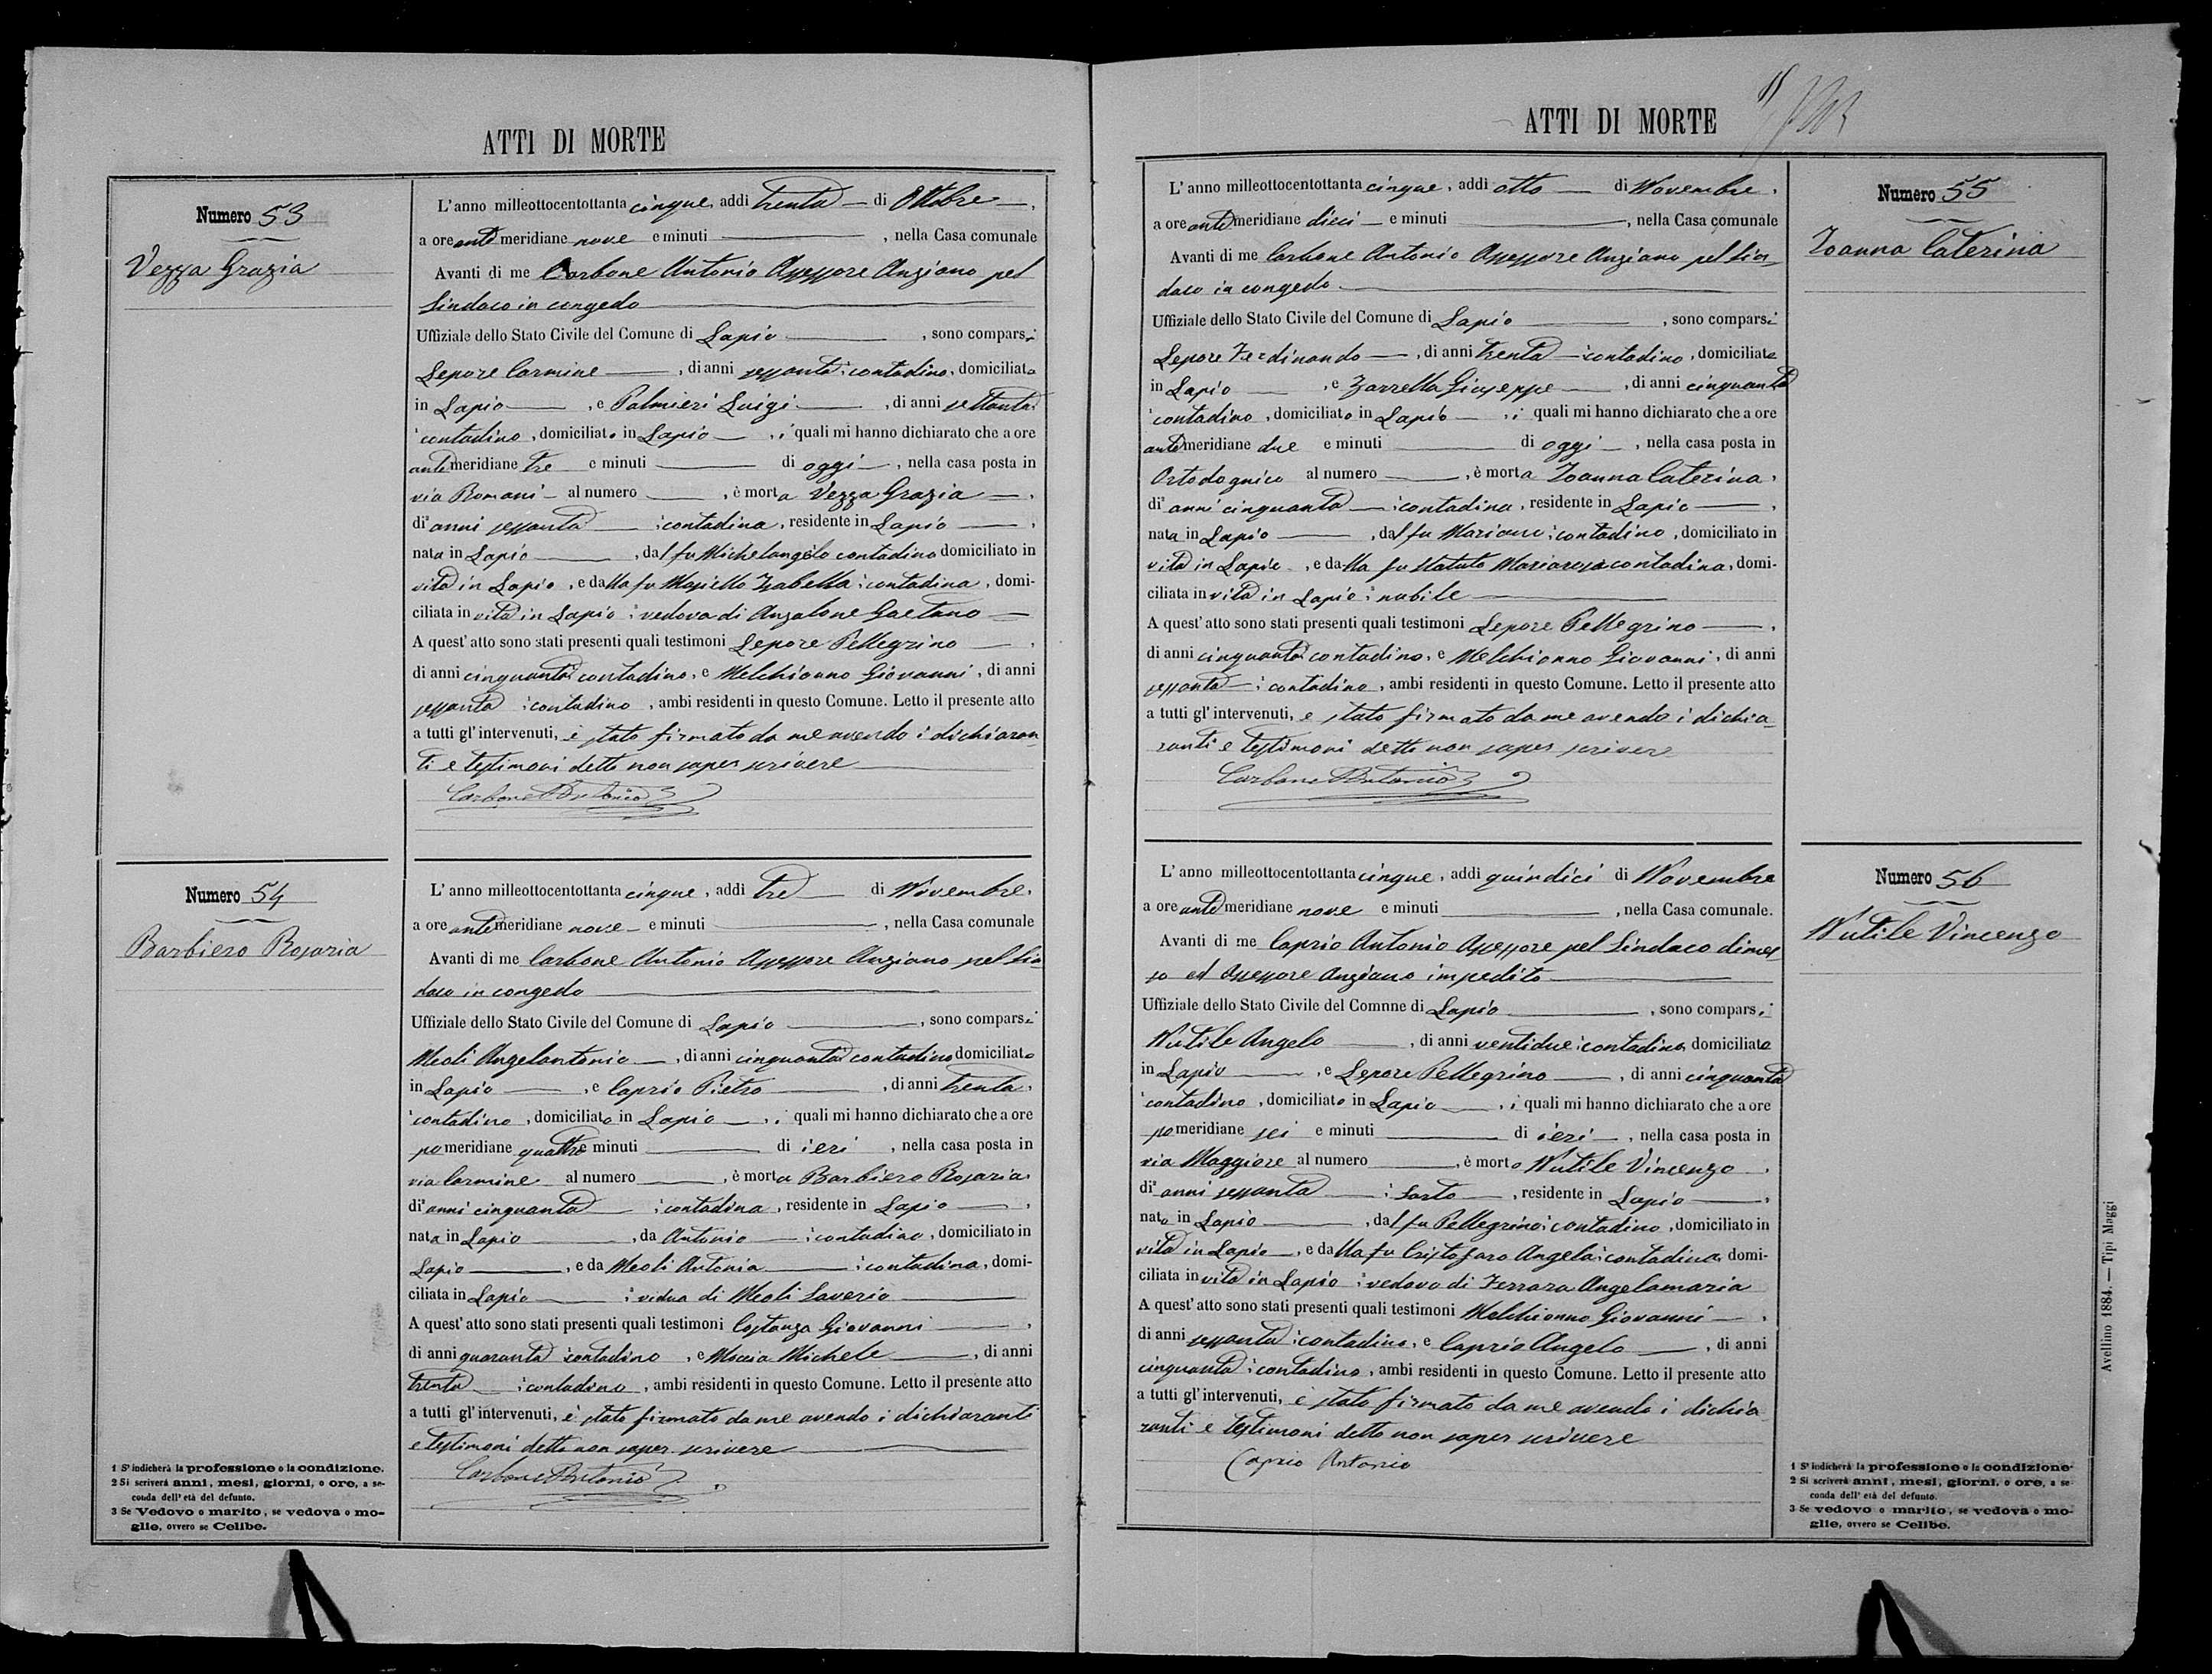 ATTI DI MORTE
Numero 53
Vezza Grazia
L'anno milleottocentottanta cinque, addi trenta di Ottobre,
a ore ante meridiane nove e minuti , nella Casa comunale
Avanti di me Carbone Antonio Assessore Anziano pel
Sindaco in congedo
Uffiziale dello Stato Civile del Comune di Lapio , sono comparsi
Lepore Carmine , di anni sessanta contadino, domiciliato
in Lapio , e Palmieri Luigi , di anni settanta
contadino , domiciliato in Lapio , i quali mi hanno dichiarato che a ore
ante meridiane tre e minuti di oggi , nella casa posta in
via Romani al numero , è morta Vezza Grazia ,
di anni sessanta contadina, residente in Lapio ,
nata in Lapio , dal fu Michelangelo contadino domiciliato in
vita in Lapio , e dalla fu Masiello Isabella contadina , domi-
ciliata in vita in Lapio vedova di Anzalone Gaetano
A quest' atto sono stati presenti quali testimoni Lepore Pellegrino ,
di anni cinquanta contadino, e Melchionno Giovanni , di anni
sessanta contadino , ambi residenti in questo Comune. Letto il presente atto
a tutti gl' intervenuti, è stato firmato da me avendo i dichiaran
ti e testimoni detto non saper scrivere
Carbone Antonio
Numero 54
Barbiero Rosaria
L'anno milleottocentottanta cinque, addi tre di Novembre,
a ore ante meridiane nove e minuti , nella Casa comunale
Avanti di me Carbone Antonio Assessore Anziano pel Sin
daco in congedo
Uffiziale dello Stato Civile del Comune di Lapio , sono comparsi
Meoli Angelantonio , di anni cinquanta contadino domiciliato
in Lapio , e Caprio Pietro , di anni trenta
contadino , domiciliato in Lapio , i quali mi hanno dichiarato che a ore
po meridiane quattro minuti di ieri , nella casa posta in
via Carmine al numero , è morta Barbiero Rosaria
di anni cinquanta contadina , residente in Lapio ,
nata in Lapio , da Antonio contadino , domiciliato in
Lapio , e da Meoli Antonia contadina , domi-
ciliata in Lapio vidua di Meoli Saverio
A quest' atto sono stati presenti quali testimoni Costanza Giovanni ,
di anni quaranta contadino , e Michele , di anni
trenta contadino , ambi residenti in questo Comune. Letto il presente atto
a tutti gl' intervenuti, è stato firmato da me avendo i dichiaranti
e testimoni detto non saper scrivere
Carbone Antonio
1 S' indicherà la professione o la condizione.
2 Si scriverà anni, mesi, giorni, o ore, a se-
conda dell' età del defunto.
3 Se Vedovo o marito, se vedova o mo-
glie, ovvero se Celibe.
ATTI DI MORTE
Numero 55
Ioanna Caterina
L'anno milleottocentottanta cinque, addi otto di Novembre ,
a ore ante meridiane dieci e minuti , nella Casa comunale
Avanti di me Carbone Antonio Assessore Anziano pel Sin
daco in congedo
Uffiziale dello Stato Civile del Comune di Lapio , sono comparsi
Lepore Ferdinando , di anni trenta contadino , domiciliato
in Lapio , e Zarrella Giuseppe , di anni cinquanta
contadino , domiciliato in Lapio , i quali mi hanno dichiarato che a ore
ante meridiane due e minuti di oggi , nella casa posta in
Ortodognico al numero , è morta Ioanna Caterina ,
di anni cinquanta contadina , residente in Lapio ,
nata in Lapio , dal fu Mariano contadino , domiciliato in
vita in Lapio , e dalla fu Statuto Mariarosa contadina, domi-
ciliata in vita in Lapio nubile
A quest' atto sono stati presenti quali testimoni Lepore Pellegrino ,
di anni cinquanta contadino, e Melchionno Giovanni , di anni
sessanta contadino , ambi residenti in questo Comune. Letto il presente atto
a tutti gl' intervenuti, è stato firmato da me avendo i dichia
ranti e testimoni detto non saper scrivere
Carbone Antonio
Numero 56
Nutile Vincenzo
L'anno milleottocentottanta cinque, addi quindici di Novembre
a ore ante meridiane nove e minuti , nella Casa comunale.
Avanti di me Caprio Antonio Assessore pel Sindaco dimes
so ed Assessore Anziano impedito
Uffiziale dello Stato Civile del Comnne di Lapio , sono comparsi
Nutile Angelo , di anni ventidue contadino domiciliato
in Lapio , e Lepore Pellegrino , di anni cinquanta
contadino , domiciliato in Lapio , i quali mi hanno dichiarato che a ore
po meridiane sei e minuti di ieri , nella casa posta in
via Maggiore al numero , è morto Nutile Vincenzo ,
di anni sessanta Sarto , residente in Lapio ,
nato in Lapio , dal fu Pellegrino contadino , domiciliato in
vita in Lapio , e dalla fu Cristofaro Angela contadina domi-
ciliata in vita in Lapio vedovo di Ferrara Angelamaria
A quest' atto sono stati presenti quali testimoni Melchionno Giovanni ,
di anni sessanta contadino, e Caprio Angelo , di anni
cinquanta contadino , ambi residenti in questo Comune. Letto il presente atto
a tutti gl' intervenuti, è stato firmato da me avendo i dichia
ranti e testimoni detto non saper scrivere
Caprio Antonio
1 S' indicherà la professione o la condizione.
2 Si scriverà anni, mesi, giorni, o ore, a se-
conda dell' età del defunto.
3 Se vedovo o marito, se vedova o mo-
glie, ovvero se Celibe.
Avellino 1884. — Tipi Maggi